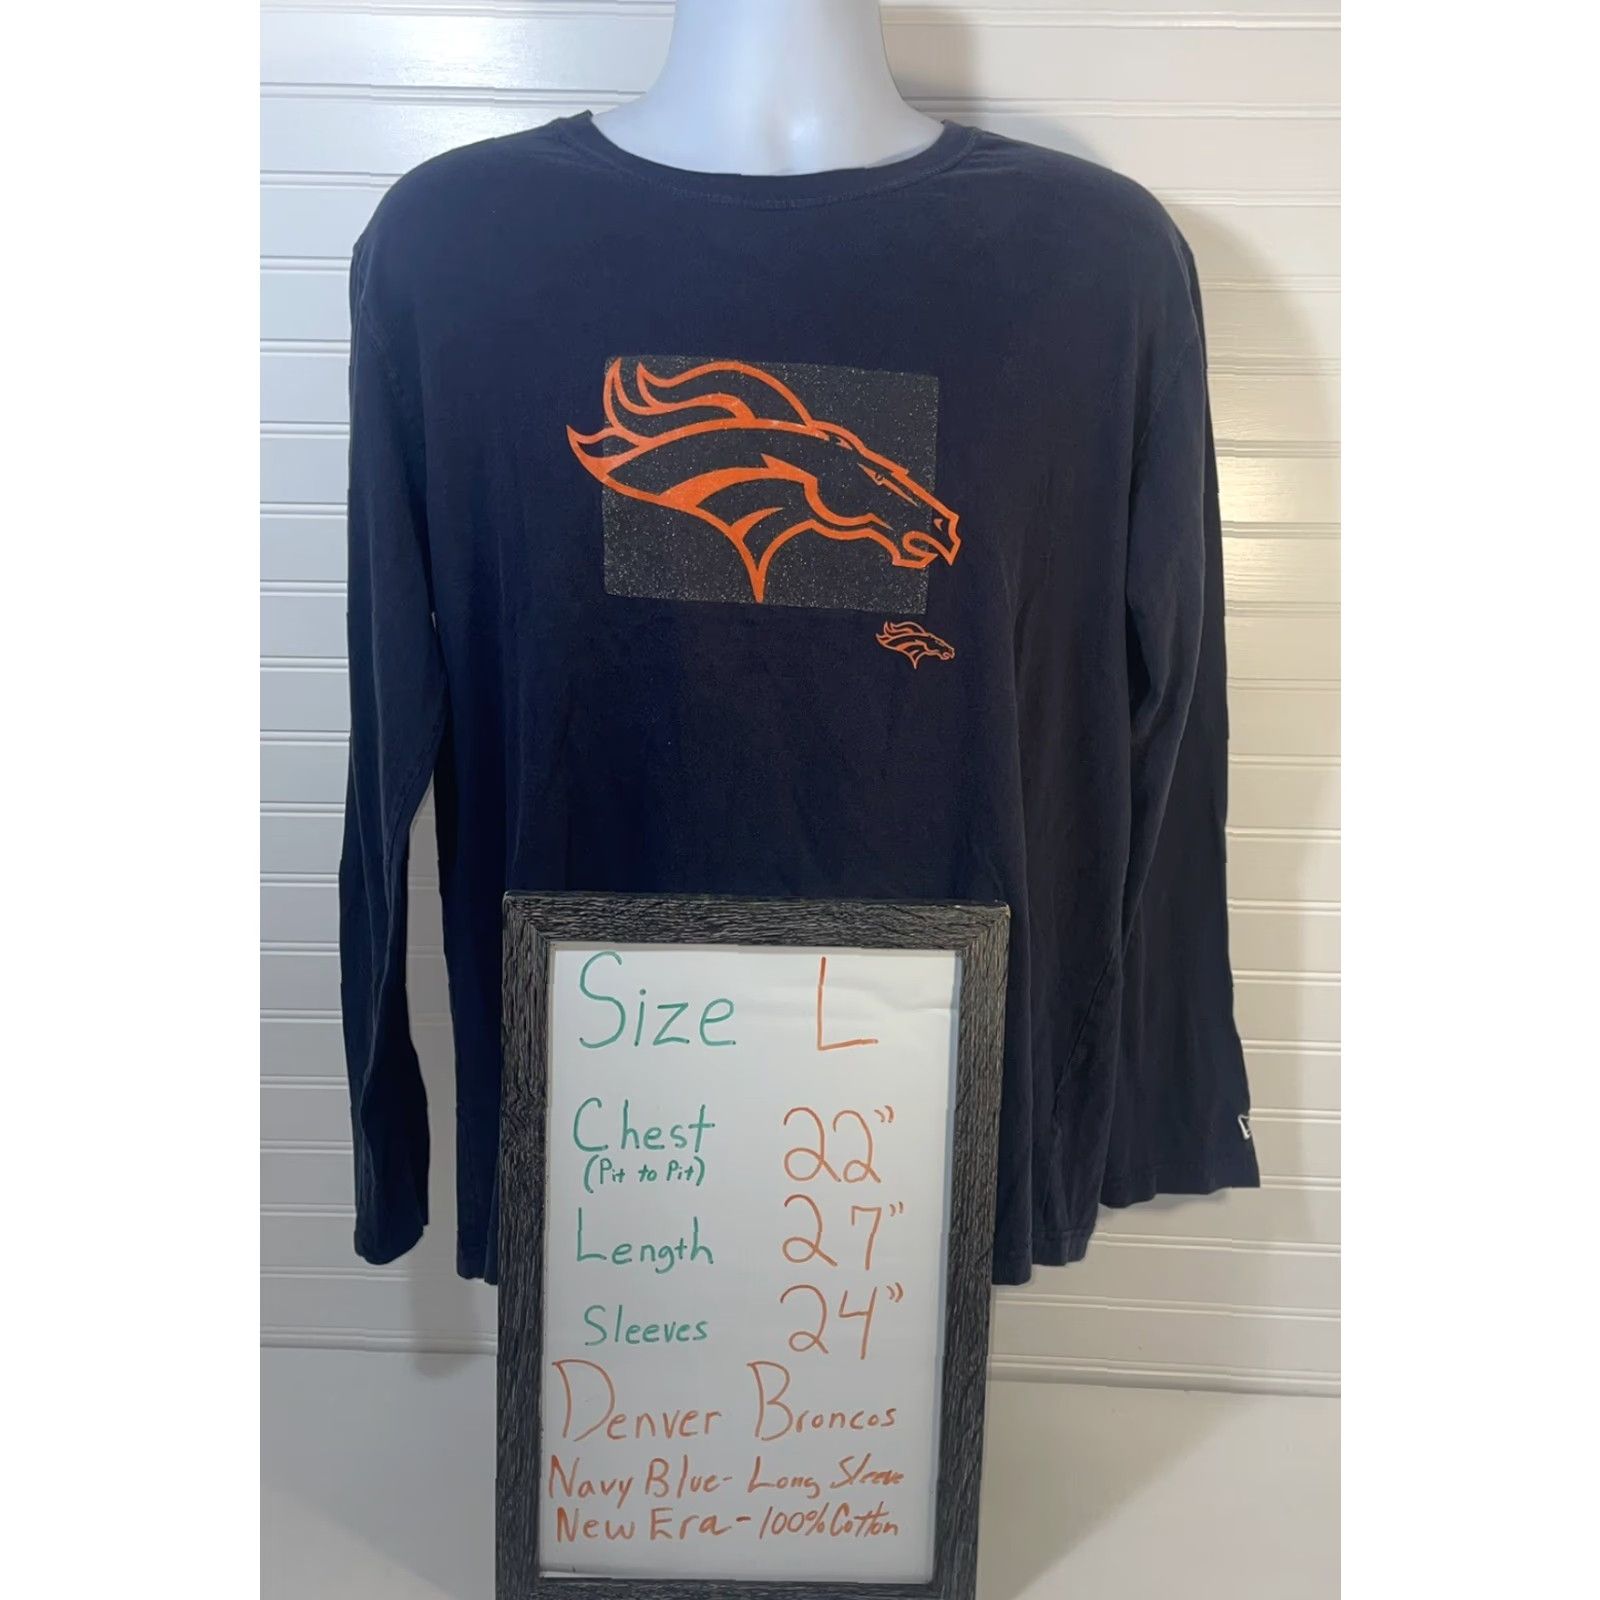 Size L
Chest 22"
(Pit to Pit)
Length 27"
Sleeves 24"
Denver Broncos
Navy Blue- Long Sleeve
New Era - 100% Cotton